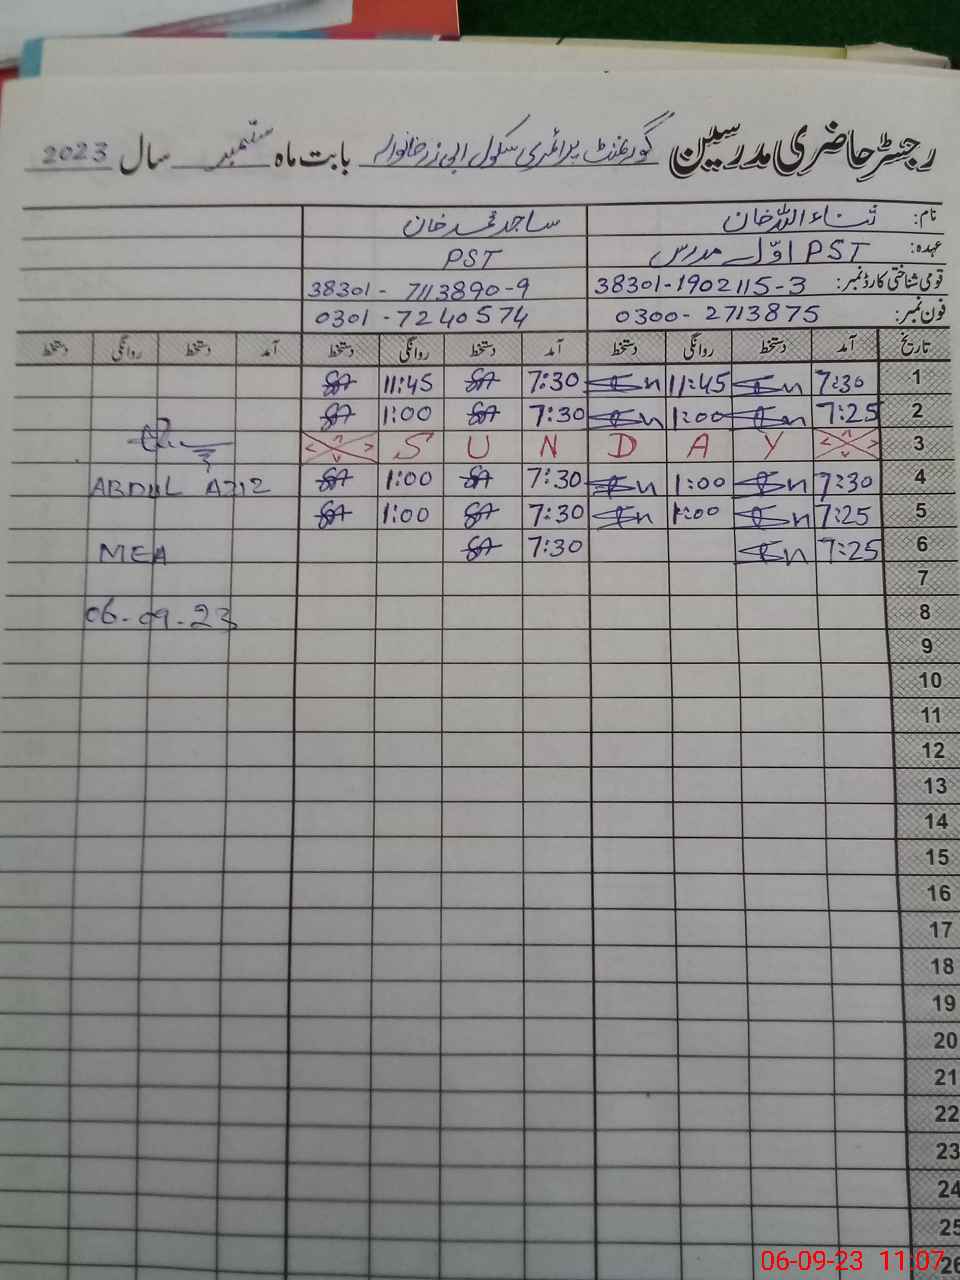 رجسٹر حاضری مدرسین گورنمنٹ پرائمری سکول بابت ماہ ستمبر سال 2023
نام: ثناء اللہ خان ساجد محمد خان
عہدہ: PST اوّل مدرس PST
قومی شناختی کارڈ نمبر: 38301-1902115-3 38301-7113890-9
فون نمبر: 0300-2713875 0301-7240574
تاریخ آمد دستخط روانگی دستخط آمد دستخط روانگی دستخط آمد دستخط روانگی دستخط
1 7:30 11:45 7:30 11:45
2 7:25 1:00 7:30 1:00
3 S U N D A Y
4 7:30 1:00 7:30 1:00 ABDUL AZIZ
5 7:25 1:00 7:30 1:00
6 7:25 7:30 MEA
7
8 06-09-23
9
10
11
12
13
14
15
16
17
18
19
20
21
22
23
24
25
26
06-09-23 11:07